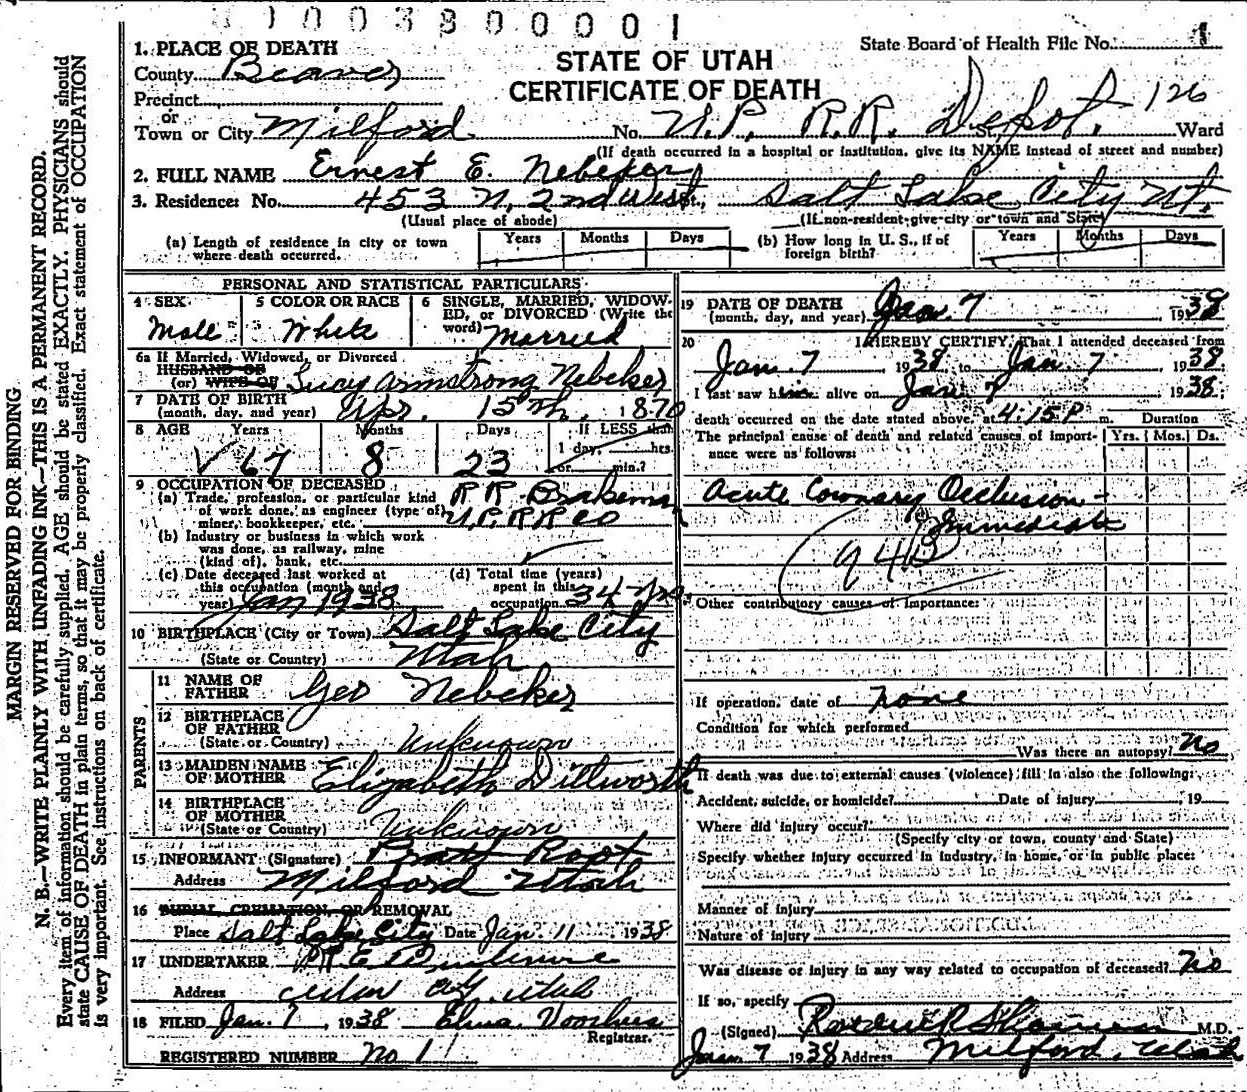 01003800001
State Board of Health File No. 1
STATE OF UTAH
CERTIFICATE OF DEATH
1. PLACE OF DEATH
County Beaver
Precinct
or
Town or City Milford No. U.P. R.R. Depot. St. Ward
126
(If death occurred in a hospital or institution, give its NAME instead of street and number)
2. FULL NAME Ernest E. Nebeker
3. Residence: No. 453 N. 2nd West St., Salt Lake City Ut.
(Usual place of abode) (If non-resident give city or town and State)
(a) Length of residence in city or town where death occurred. Years Months Days (b) How long in U. S., if of foreign birth? Years Months Days
PERSONAL AND STATISTICAL PARTICULARS
4 SEX 5 COLOR OR RACE 6 SINGLE, MARRIED, WIDOW-
ED, or DIVORCED (Write the
word)
Male White Married
6a If Married, Widowed, or Divorced
HUSBAND OF
(or) WIFE OF Lucy Armstrong Nebeker
7 DATE OF BIRTH
(month, day, and year) Apr. 15th, 1870
8 AGE Years Months Days If LESS than
1 day, hrs.
or min.?
67 8 23
9 OCCUPATION OF DECEASED
(a) Trade, profession, or particular kind
of work done, as engineer (type of)
miner, bookkeeper, etc.
R R Brakeman
U.P.R.R Co
(b) Industry or business in which work
was done, as railway, mine
(kind of), bank, etc.
(c) Date deceased last worked at
this occupation (month and
year) Jan 1938
(d) Total time (years)
spent in this
occupation 34 yrs.
10 BIRTHPLACE (City or Town) Salt Lake City
(State or Country) Utah
PARENTS
11 NAME OF
FATHER Geo Nebeker
12 BIRTHPLACE
OF FATHER
(State or Country) Unknown
13 MAIDEN NAME
OF MOTHER Elizabeth Dillworth
14 BIRTHPLACE
OF MOTHER
(State or Country) Unknown
15 INFORMANT (Signature) Pratt Root
Address Milford Utah
16 BURIAL, CREMATION, OR REMOVAL
Place Salt Lake City Date Jan. 11 1938
17 UNDERTAKER
Address Utah
18 FILED Jan. 7, 1938 Elma Voorhees
Registrar.
REGISTERED NUMBER No 1
19 DATE OF DEATH
(month, day, and year) Jan 7 1938
20 I HEREBY CERTIFY, That I attended deceased from
Jan. 7 1938 to Jan 7 1938
I last saw him alive on Jan 7 1938;
death occurred on the date stated above, at 4:15 P m.
Duration
The principal cause of death and related causes of import-
ance were as follows:
Yrs. Mos. Ds.
Acute Coronary Occlusion -
Immediate
94B
Other contributory causes of importance:
If operation, date of none
Condition for which performed
Was there an autopsy? No
If death was due to external causes (violence) fill in also the following:
Accident, suicide, or homicide? Date of injury 19
Where did injury occur?
(Specify city or town, county and State)
Specify whether injury occurred in industry, in home, or in public place:
Manner of injury
Nature of injury
Was disease or injury in any way related to occupation of deceased? No
If so, specify
(Signed) M.D.
Jan 7 1938 Address Milford, Utah
MARGIN RESERVED FOR BINDING
N. B.—WRITE PLAINLY WITH UNFADING INK—THIS IS A PERMANENT RECORD.
Every item of information should be carefully supplied. AGE should be stated EXACTLY. PHYSICIANS should
state CAUSE OF DEATH in plain terms, so that it may be properly classified. Exact statement of OCCUPATION
is very important. See instructions on back of certificate.